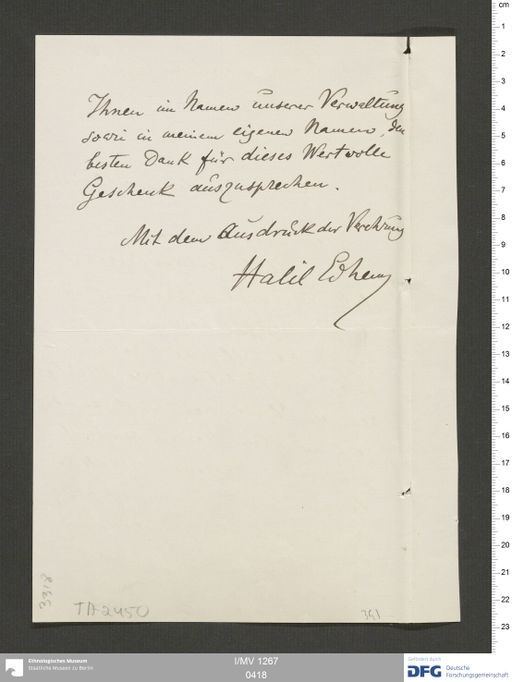 Ihnen im Namen unserer Verwaltung
sowie in meinem eigenen Namen, den
besten Dank für dieses Wertvolle
Geschenk auszusprechen.
Mit dem Ausdruck der Verehrung
Halil Edhem
3318
TA 2450
361
Ethnologisches Museum
Staatliche Museen zu Berlin
I/MV 1267
0418
Gefördert durch
DFG Deutsche
Forschungsgemeinschaft
cm
1
2
3
4
5
6
7
8
9
10
11
12
13
14
15
16
17
18
19
20
21
22
23